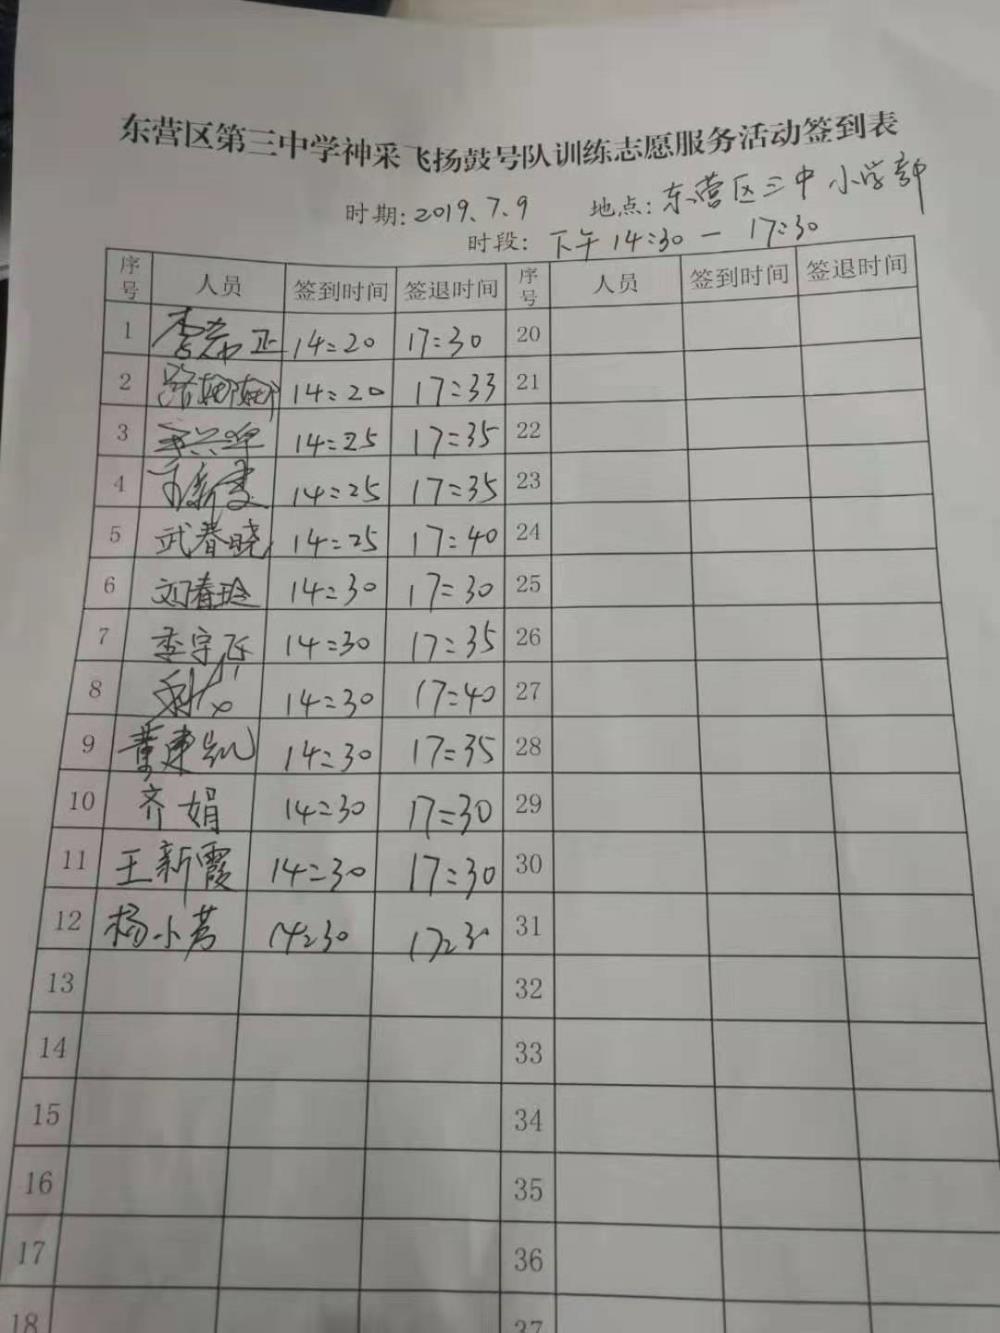 东营区第三中学神采飞扬鼓号队训练志愿服务活动签到表
时期: 2019.7.9 地点: 东营区三中小学部
时段: 下午 14:30 — 17:30
序号 人员 签到时间 签退时间 序号 人员 签到时间 签退时间
1 14:20 17:30 20
2 14:20 17:33 21
3 14:25 17:35 22
4 14:25 17:35 23
5 武春晓 14:25 17:40 24
6 刘春玲 14:30 17:30 25
7 李宇飞 14:30 17:35 26
8 14:30 17:40 27
9 董建凯 14:30 17:35 28
10 齐娟 14:30 17:30 29
11 王新霞 14:30 17:30 30
12 杨小芳 14:30 17:30 31
13 32
14 33
15 34
16 35
17 36
18 37